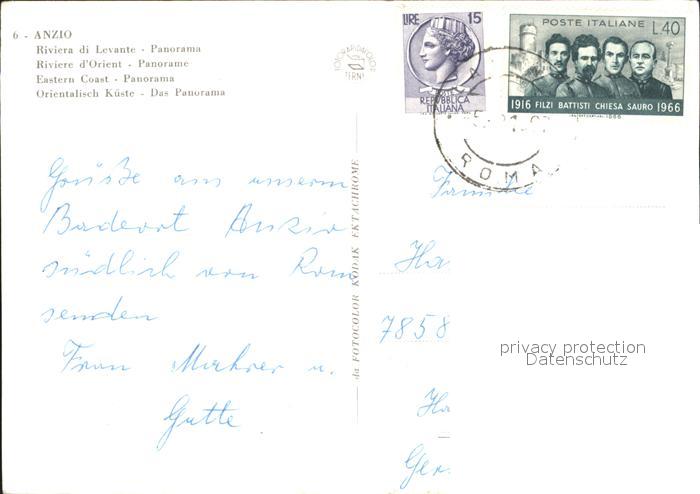 6 - ANZIO
Riviera di Levante - Panorama
Riviere d'Orient - Panorame
Eastern Coast - Panorama
Orientalisch Küste - Das Panorama
TERNI
LIRE 15
POSTE
REPUBBLICA
ITALIANA
POSTE ITALIANE L.40
1916 FILZI BATTISTI CHIESA SAURO 1966
ROMA
da FOTOCOLOR KODAK EKTACHROME
Grüße aus unserm
Badeort Anzio
südlich von Rom
senden
Frau Mahrer u.
Gatte
Familie
Ha
7858
Ha
Ger
privacy protection
Datenschutz